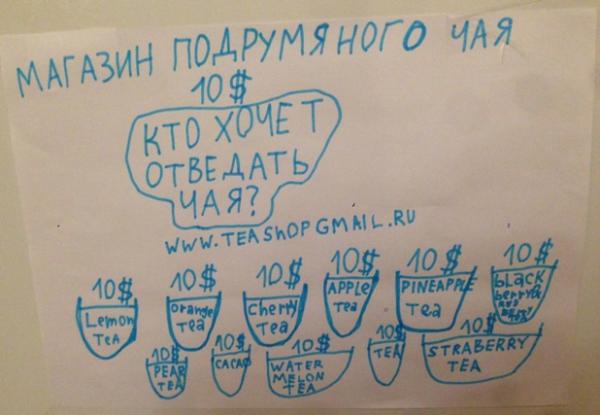 МАГАЗИН ПОДРУМЯНОГО ЧАЯ
10$
КТО ХОЧЕТ
ОТВЕДАТЬ
ЧАЯ?
WWW.TEASHOPGMAIL.RU
10$ 10$ 10$ 10$ 10$ 10$
Lemon
TEA
orange
TEA
Cherry
TEA
APPLE
Tea
PINEAPPLE
Tea
black
berry&
10$ 10$ 10$ 10$ 10$
PEAR
TEA
CACAO
WATER
MELON
TEA
TEA
STRABERRY
TEA